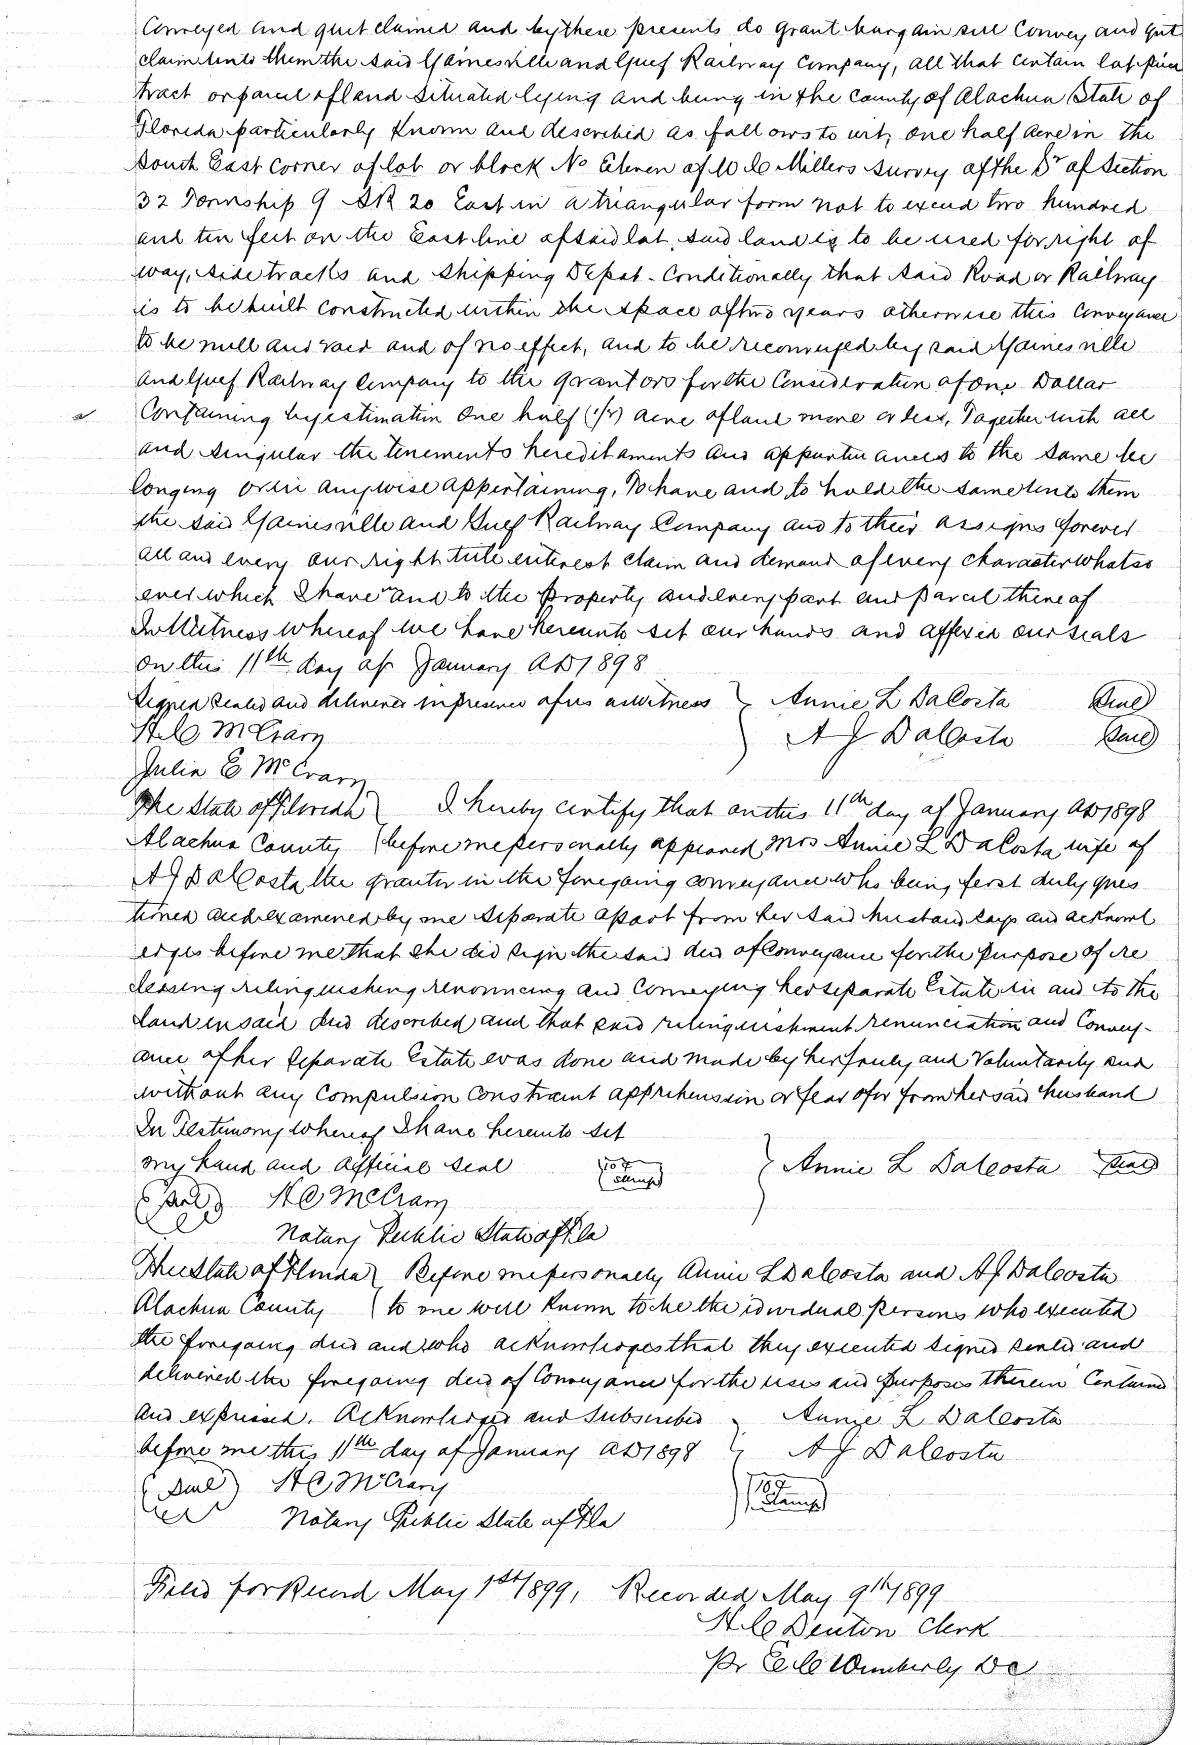 Conveyed and quit claimed and by these presents do grant bargain sell Convey and quit
claim unto them the said Gainesville and Gulf Railway Company, all that certain lot piece
tract or parcel of land situated lying and being in the County of Alachua State of
Florida particularly Known and described as follows to wit, one half acre in the
South East corner of lot or block No Eleven of W C Millers Survey of the of Section
32 Township 9 S R 20 East in a triangular form not to exceed two hundred
and ten feet on the East line of said lot, said land is to be used for right of
way, side tracks and Shipping Depot - Conditionally that said Road or Railway
is to be built constructed within the space of two years otherwise this conveyance
to be null and void and of no effect, and to be reconveyed by said Gainesville
and Gulf Railway Company to the grantors for the Consideration of One Dollar
Containing by estimation One half (1/2) acre of land more or less, Together with all
and singular the tenements hereditaments and appurtenances to the same be
longing or in anywise appertaining, To have and to hold the same unto them
the said Gainesville and Gulf Railway Company and to their assigns forever
all and every our right title interest claim and demand of every character whatso
ever which I have and to the Property and every part and parcel thereof
In Witness whereof we have hereunto set our hands and affixed our seals
on this 11th day of January AD 1898
Signed sealed and delivered in presence of us as witness } Annie L DaCosta (Seal)
H C McCrary } A J DaCosta (Seal)
Julia E McCrary
The State of Florida } I hereby certify that on this 11th day of January AD 1898
Alachua County } before me personally appeared Mrs Annie L DaCosta wife of
A J DaCosta the grantor in the foregoing conveyance who being first duly ques
tioned and examined by me separate apart from her said husband says and acknowl
edges before me that she did sign the said deed of Conveyance for the Purpose of re
leasing relinquishing renouncing and Conveying her separate Estate in and to the
land in said deed described and that said relinquishment renunciation and Convey-
ance of her Separate Estate was done and made by her freely and Voluntarily and
without any Compulsion constraint apprehension or fear of or from her said husband
In Testimony whereof I have hereunto set
my hand and official seal (10¢ Stamp) } Annie L DaCosta (Seal)
(Seal) H C McCrary
Notary Public State of Fla
The State of Florida } Before me personally Annie L DaCosta and A J DaCosta
Alachua County } to me well Known to be the idividual persons who executed
the foregoing deed and who acknowledges that they executed signed sealed and
delivered the foregoing deed of Conveyance for the uses and purposes therein Contained
and expressed. Acknowledged and subscribed } Annie L DaCosta
before me this 11th day of January AD 1898 } A J DaCosta
(Seal) H C McCrary (10¢ Stamp)
Notary Public State of Fla
Filed for Record May 1st 1899, Recorded May 9th 1899
H C Denton Clerk
Pr E C Wimberly DC